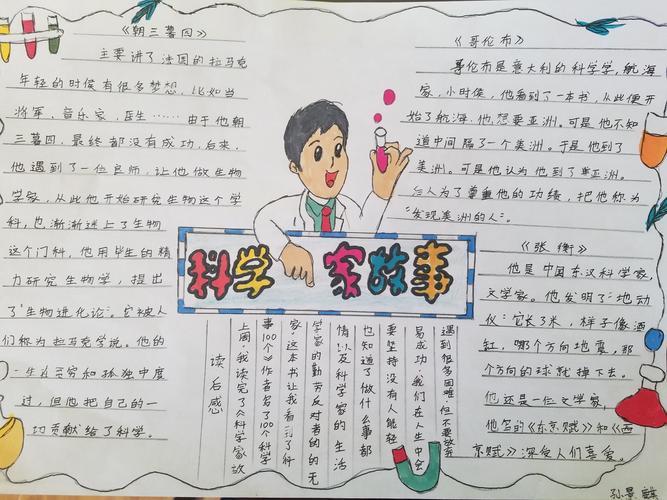 《朝三暮四》
主要讲了法国的拉马克
年轻的时候有很多梦想,比如当
将军,音乐家,医生……由于他朝
三暮四,最终都没有成功,后来,
他遇到了一位良师,让他做生物
学家,从此他开始研究生物这个学
科,也渐渐迷上了生物
这个门科,他用毕生的精
力研究生物学,提出
了"生物进化论",它被人
们称为拉马克学说。他的
一生在贫穷和孤独中度
过,但他把自己的一
切贡献给了科学。
科学家故事
《哥伦布》
哥伦布是意大利的科学学,航海
家,小时侯,他看到了一本书,从此便开
始了航海,他想要亚洲。可是他不知
道中间隔了一个美洲。于是他到了
美洲。可是他认为他到了亚洲。
后人为了尊重他的功绩,把他称为
"发现美洲的人"。
《张衡》
他是中国东汉科学家,
文学家。他发明了:地动
仪:它长了米,样子像酒
缸,哪个方向地震,那
个方向的球就掉下去。
他还是一位文学家,
他写的《东京赋》和《西
京赋》深受人们喜爱。
读后感
上周,我读完了《科学家故
事100个》作者名了100个科学
家,这本书让我看到了科
学家的勤劳反对者的的无
情以及科学家的生活
也知道了做什么事都
要坚持没有人能轻
易成功,我们在人生中会
遇到很多困难,但不要放弃
孙景